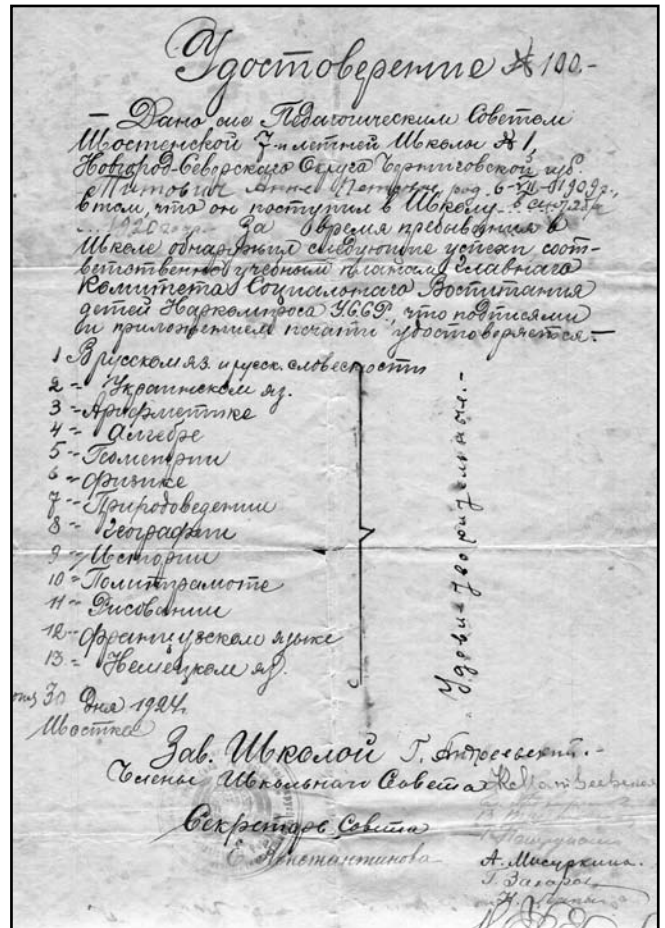 Удостоверение № 100.-
— Дано сие Педагогическим Советом
Шостенской 7-и летней Школы № 1,
Новгород-Северскаго Округа Черниговской губ.
Анне род. 6-VII-1909 г.,
в том, что он поступил в Школу
1920 За время пребывания в
Школе обнаружил следующие успехи соот-
ветственно учебным планам Главнаго
Комитета Социалонаго Воспитания
детей Наркомпроса УССР, что подписями
и приложением печати удостоверяется:-
1 В русском яз. и русск. словесности
2 " Украинском яз.
3 " Арифметике
4 " Алгебре
5 " Геометрии
6 " Физике
7 " Природоведении
8 " Географии
9 " Истории
10 " Политграмоте
11 " Рисовании
12 " Французском языке
13 " Немецком яз.
Удовлетворительныя.-
30 дня 1924 г.
Шостка
Зав. Школой Г.
Члены Школьнаго Совета
Секретарь Совета
Е. Константинова
А. Мисуркина.
Г. Захаров